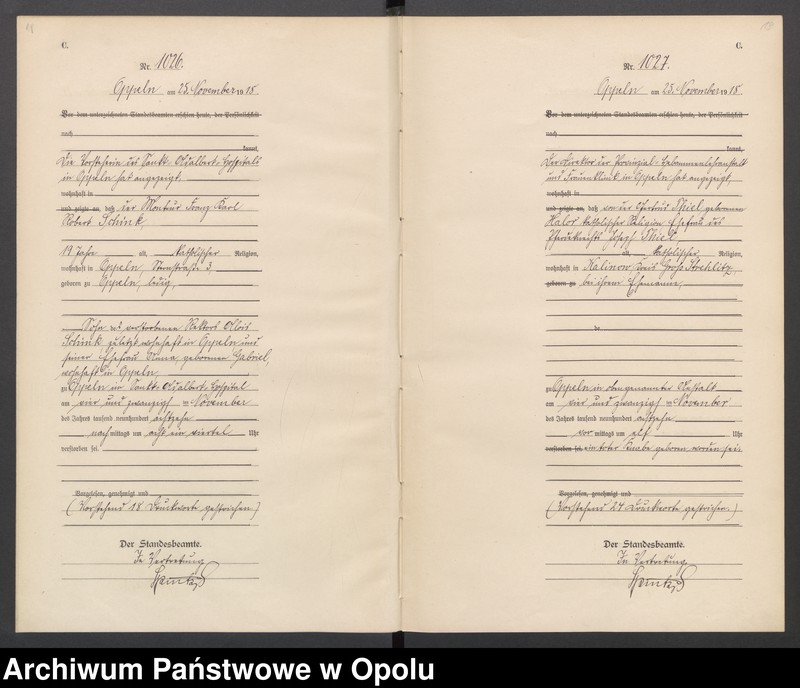 C.
Nr. 1026.
Oppeln am 25. November 1918
Vor dem unterzeichneten Standesbeamten erschien heute, der Persönlichkeit
nach
kannt,
Die Vorsteherin des Sankt-Adalbert-Hospitals
in Oppeln hat angezeigt,
wohnhaft in
und zeigte an, daß der Monteur Franz Karl
Robert Schink,
19 Jahr alt, katholischer Religion,
wohnhaft in Oppeln, Sternstraße 3
geboren zu Oppeln, ledig,
Sohn des verstorbenen Rektors Alois
Schink zuletzt wohnhaft in Oppeln und
seiner Ehefrau Anna geborenen Gabriel,
wohnhaft in Oppeln,
zu Oppeln im Sankt-Adalbert-Hospital
am vier und zwanzigsten November
des Jahres tausend neunhundert achtzehn
nachmittags um acht ein viertel Uhr
verstorben sei.
Vorgelesen, genehmigt und
(Vorstehend 18 Druckworte gestrichen)
Der Standesbeamte.
In Vertretung
C.
Nr. 1027.
Oppeln am 25. November 1918
Vor dem unterzeichneten Standesbeamten erschien heute, der Persönlichkeit
nach
kannt,
Der Direktor der Provinzial-Hebammenlehranstalt
und Frauenklinik in Oppeln hat angezeigt,
wohnhaft in
und zeigte an, daß von der Thiel geborenen
katholischer Religion Ehefrau des
Pferdeknechts Joseph Thiel,
alt, katholischer,
wohnhaft in Kalinow, Kreis Groß Strehlitz,
geboren zu bei ihrem Ehemanne,
de
zu Oppeln in obengenannter Anstalt
am vier und zwanzigsten November
des Jahres tausend neunhundert achtzehn
vormittags um elf Uhr
verstorben sei. ein toter Knabe geboren worden sei.
Vorgelesen, genehmigt und
(Vorstehend 24 Druckworte gestrichen)
Der Standesbeamte.
In Vertretung
Archiwum Państwowe w Opolu